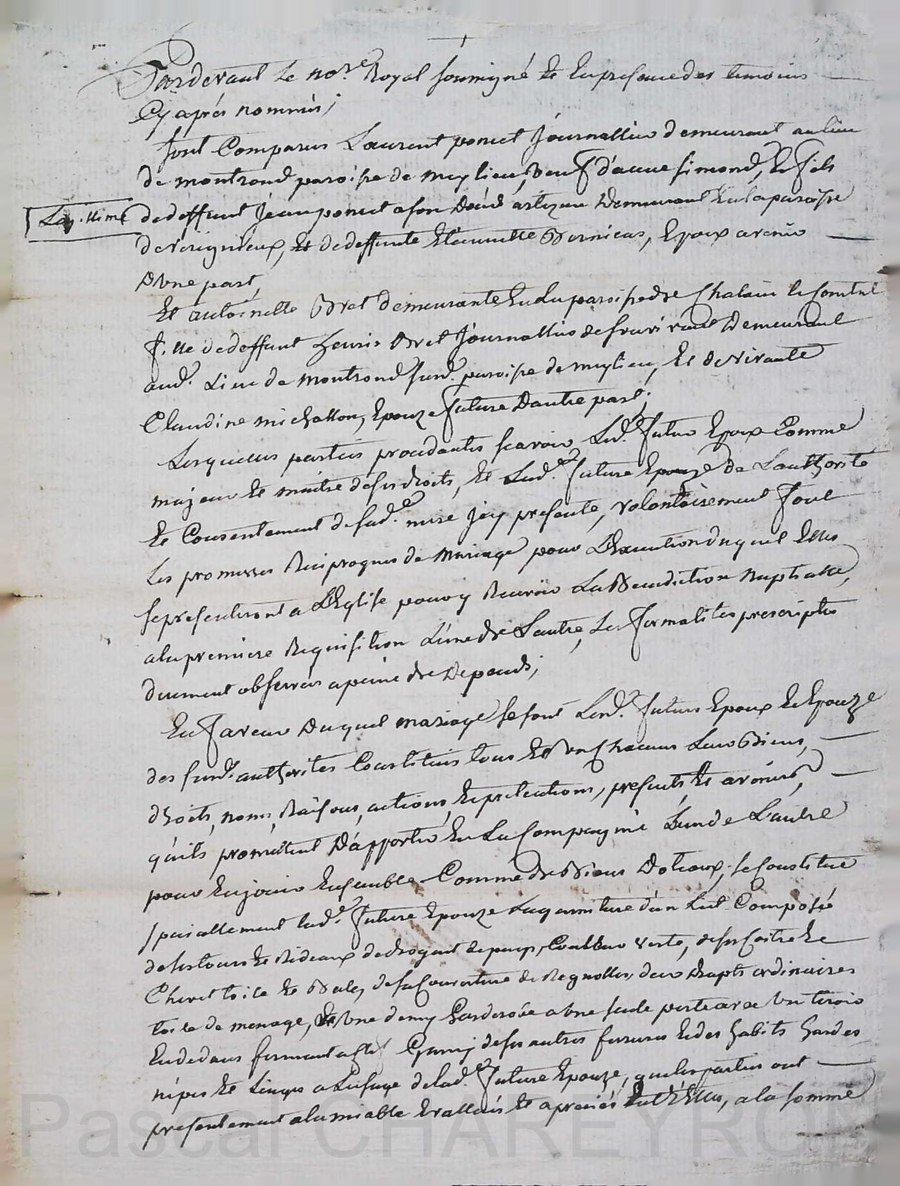 Pardevant Le no.re Royal soussigné Et En presence des temoins
Cy après nommés;
sont Comparus Laurent poncet Journallier demeurant au lieu
de montrond paroisse de meylieu, veuf d'anne simond, Et fils
Legittime
de deffunt Jean poncet a son Décès artizan Demeurant En la paroisse
de verignieux, Et de deffunte Etiennette Bernicas, Epoux avenir
D'une part,
Et antoinette Bret demeurante En la paroisse de Chalain le Comtal
fille de deffunt henris Bret Journallier de son vivant Demeurant
aud. Lieu de Montrond susd. paroisse de meylieu, Et de vivante
Claudine michallon, Epouze future D'autre part;
Lesquelles parties procedantes scavoir Led. futur Epoux Comme
majeur Et maitre de ses droits, Et Lad.e future Epouze de L'authorité
Et Consentement de sad.e mere Jcy presente, volontairement font
Les promesses Reciproques de Mariage pour L'Execution duquel Elles
se presenteront a L'Eglise pour y Recevoir La Benediction Nuptialle,
a la premiere Requisition L'une de L'autre, Les formalités prescriptes
duement observées a peine de Depends;
En faveur Duquel mariage se sont Lesd. futurs Epoux Et Epouze
des susd. authorités Constitués tous Et un Chacuns Leurs Biens,
droits, noms, Raisons, actions Et pretentions, presents Et avenirs,
qu'ils promettent D'apporter En La Compagnie L'un de L'autre
pour En jouir Ensemble Comme de Biens Dotaux; se Constitue
specialement Lad.e future Epouze La garniture d'un Lit Composé
de ses tours Et Rideaux de droguet de pays, Coulleur verte, de ses Coitre Et
Chevet toile Et Bale, de sa Couverture de deux Drapts ordinaires
toile de menage, Et Une demy Garderobe a une seule porte avec Un tiroir
En dedans fermant a Clef Garny de ses autres ferrures Et des habits hardes
nipes Et Linges a L'usage de lad.e future Epouze, que les parties ont
presentement a L'amiable Evallués Et apreciés Entr'Elles, a la somme
Pascal CHAREYRON